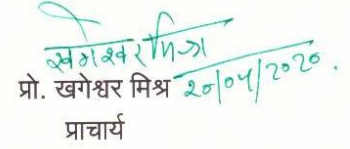 खगेश्वर मिश्र
प्रो. खगेश्वर मिश्र २०/०५/२०२०.
प्राचार्य